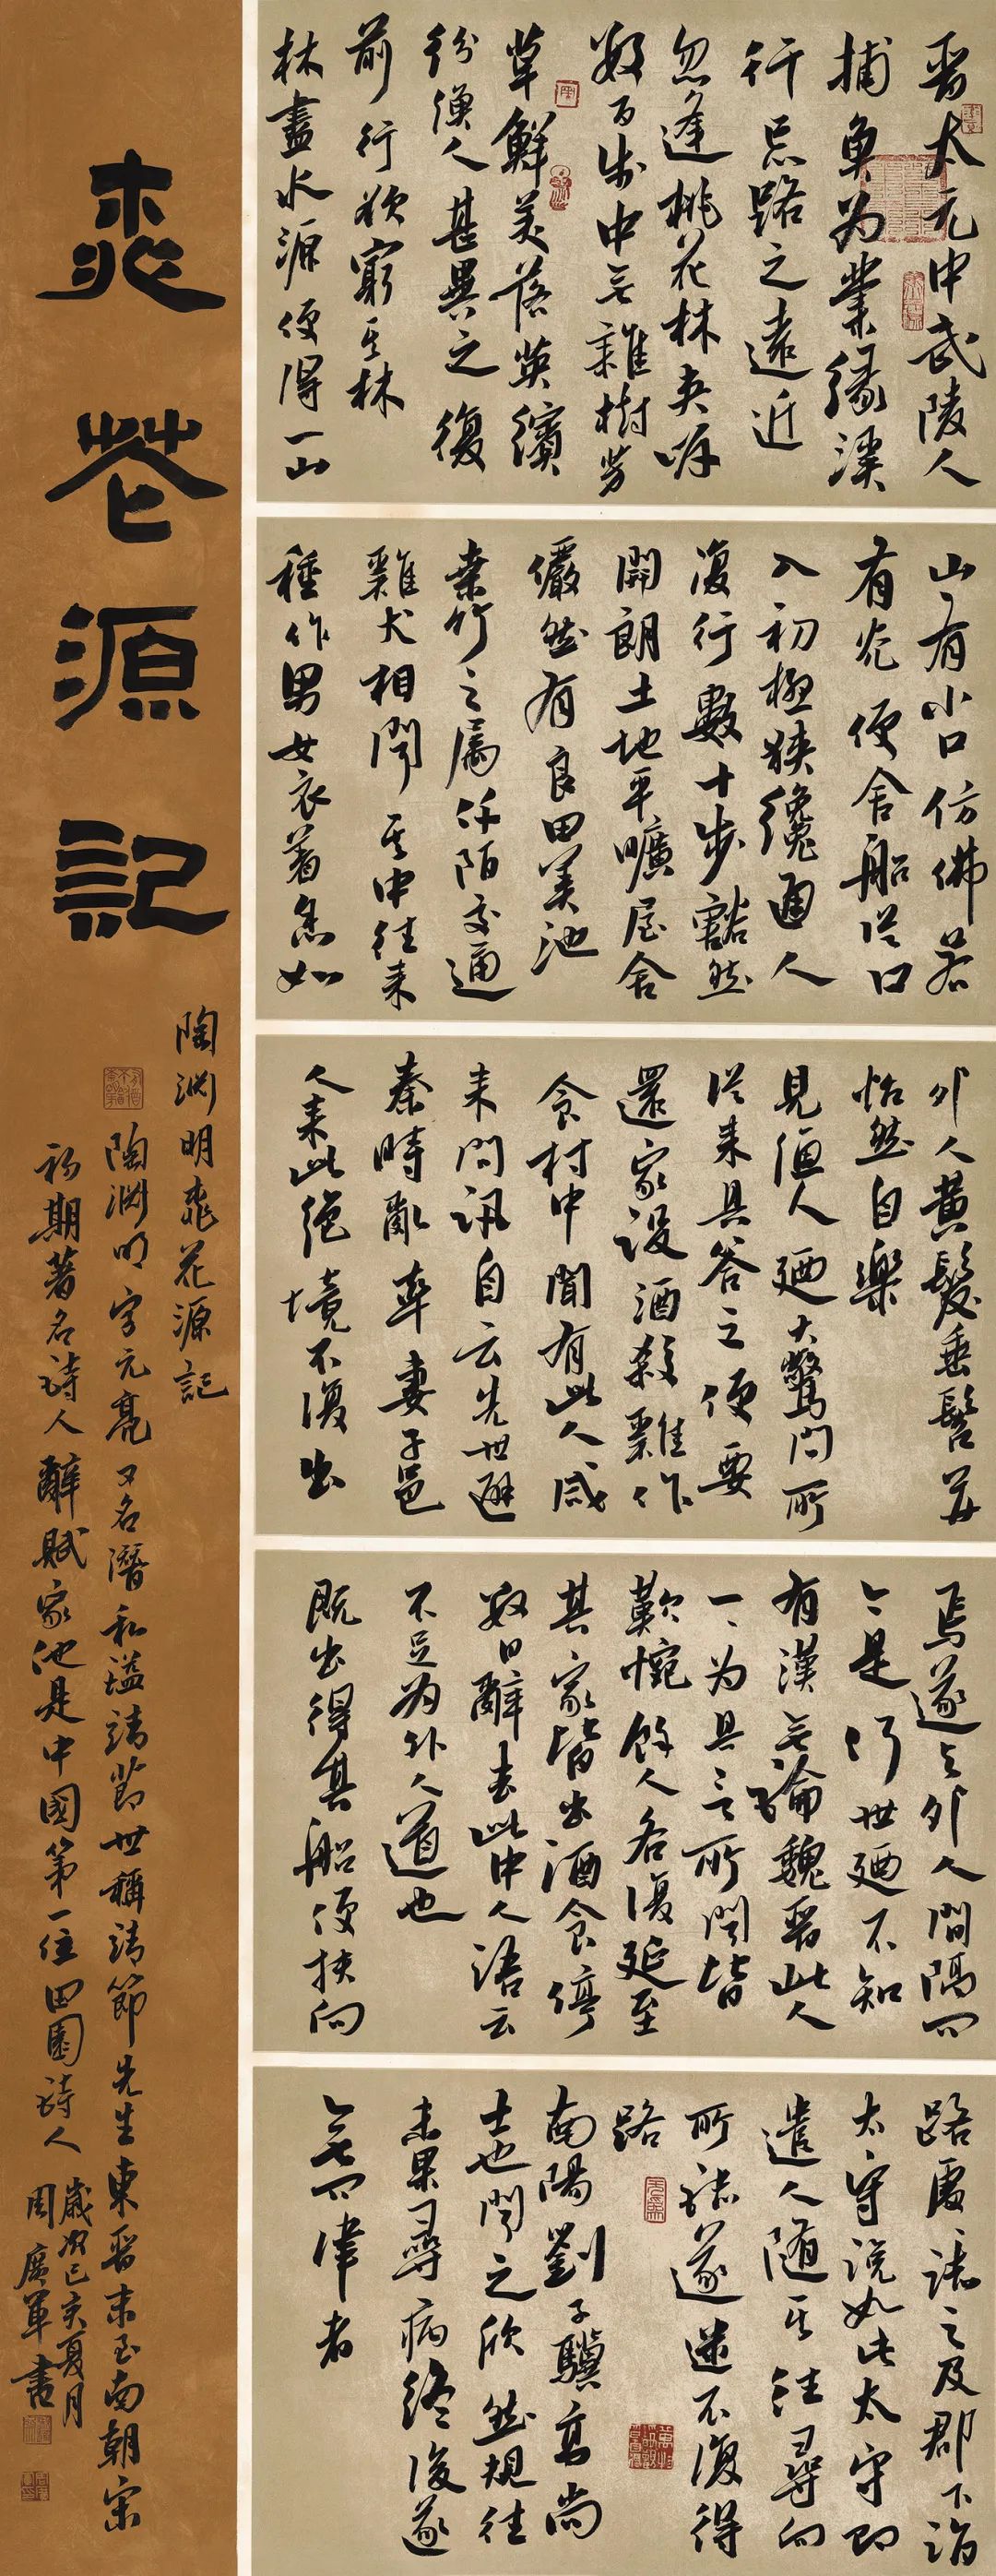 桃花源記
晉太元中武陵人
捕魚为業緣溪
行忘路之遠近
忽逢桃花林夾岸
数百步中无雜樹芳
草鮮美落英繽
纷漁人甚異之復
前行欲窮其林
林盡水源便得一山
山有小口仿佛若
有光便舍船從口
入初極狹纔通人
復行數十步豁然
開朗土地平曠屋舍
儼然有良田美池
桑竹之屬阡陌交通
雞犬相聞其中往来
種作男女衣著悉如
外人黄髮垂髫并
怡然自樂
見漁人廼大驚問所
從来具答之便要
還家設酒殺雞作
食村中聞有此人咸
来問訊自云先世避
秦時亂率妻子邑
人来此絶境不復出
焉遂与外人間隔问
今是何世廼不知
有漢无論魏晉此人
一一为具言所聞皆
歎惋餘人各復延至
其家皆出酒食停
数日辭去此中人語云
不足为外人道也
既出得其船便扶向
路處處誌之及郡下詣
太守説如此太守即
遣人随其往尋向
所誌遂迷不復得
路
南陽劉子驥高尚
士也聞之欣然規往
未果尋病終後遂
無问津者
陶渊明桃花源記
陶渊明字元亮又名潛私謚靖節世稱靖節先生東晉末至南朝宋
初期著名詩人辭賦家他是中國第一位田園詩人
歲次己亥夏月
周廣軍書